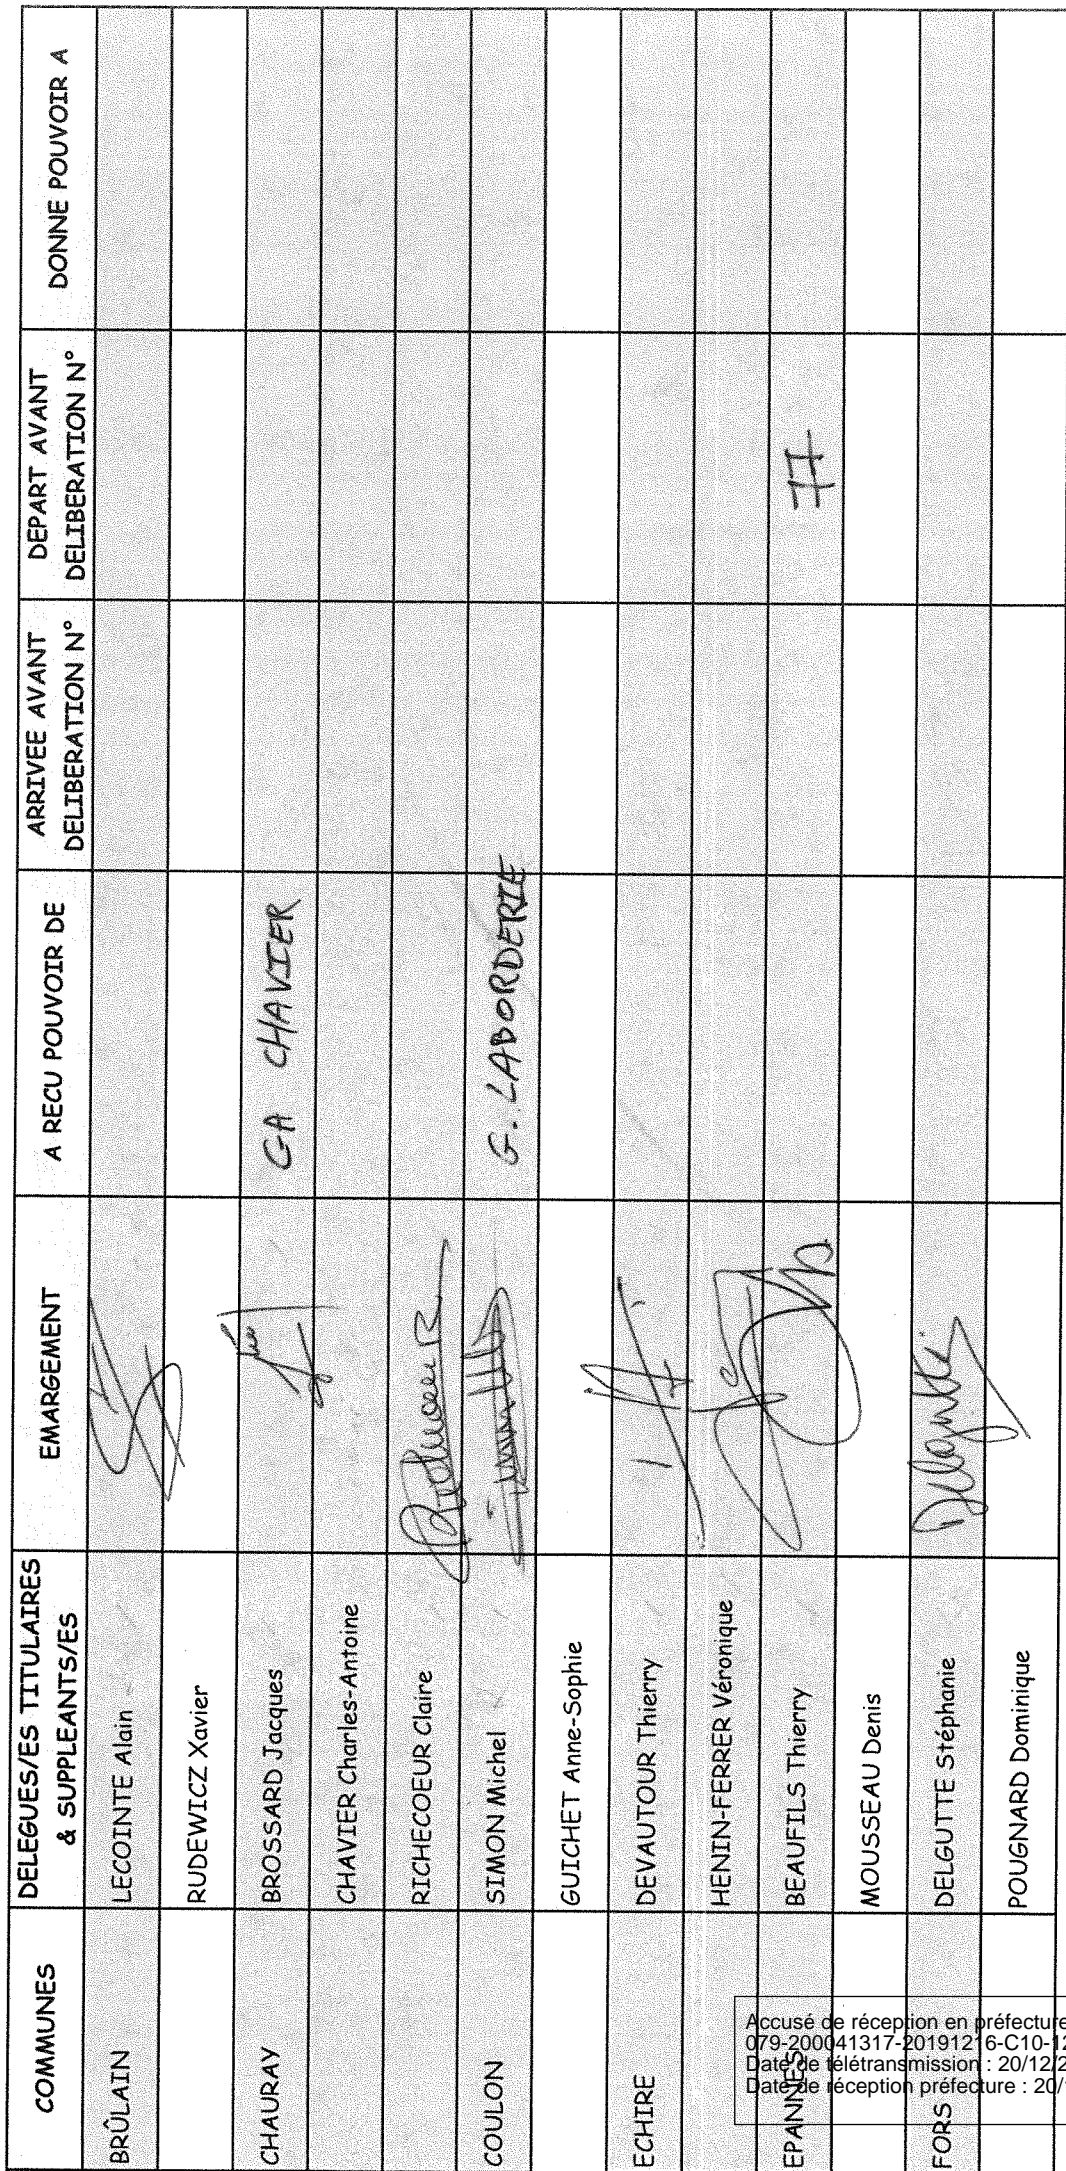 COMMUNES DELEGUES/ES TITULAIRES & SUPPLEANTS/ES EMARGEMENT A RECU POUVOIR DE ARRIVEE AVANT DELIBERATION N° DEPART AVANT DELIBERATION N° DONNE POUVOIR A
BRÛLAIN LECOINTE Alain
RUDEWICZ Xavier
CHAURAY BROSSARD Jacques CA CHAVIER
CHAVIER Charles-Antoine
RICHECOEUR Claire
COULON SIMON Michel G. LABORDERIE
GUICHET Anne-Sophie
ECHIRE DEVAUTOUR Thierry
HENIN-FERRER Véronique
EPANNES BEAUFILS Thierry 77
MOUSSEAU Denis
FORS DELGUTTE Stéphanie Delgutte
POUGNARD Dominique
Accusé de réception en préfecture
079-200041317-20191216-C10-12
Date de télétransmission : 20/12/2
Date de réception préfecture : 20/